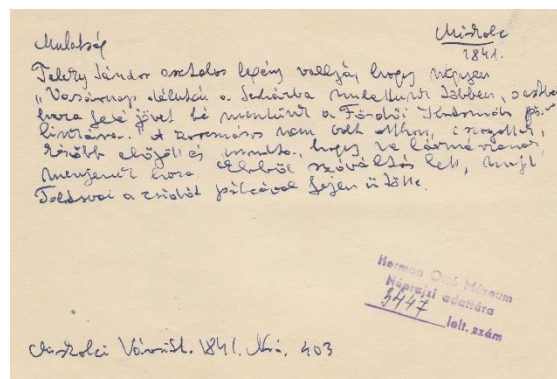 Mulatság
Miskolc
1841.
Teleky Sándor asztalos legény vallja, hogy négyen
„Vasárnap délután a Serházba mulattunk többen, s estve
haza felé jövet bé mentünk a Fördői Kortsmába pá-
linkára." A korcsmáros nem volt otthon,
később előjött és mondta, hogy ne lármázzanak,
menjenek haza. Ebből szóváltás lett, majd
Tolcsvai a zsidót pálcával fejen ütötte.
Herman Ottó Múzeum
Néprajzi adattára
3447 lelt. szám
Miskolci Városi lt. 1841. Nro. 403